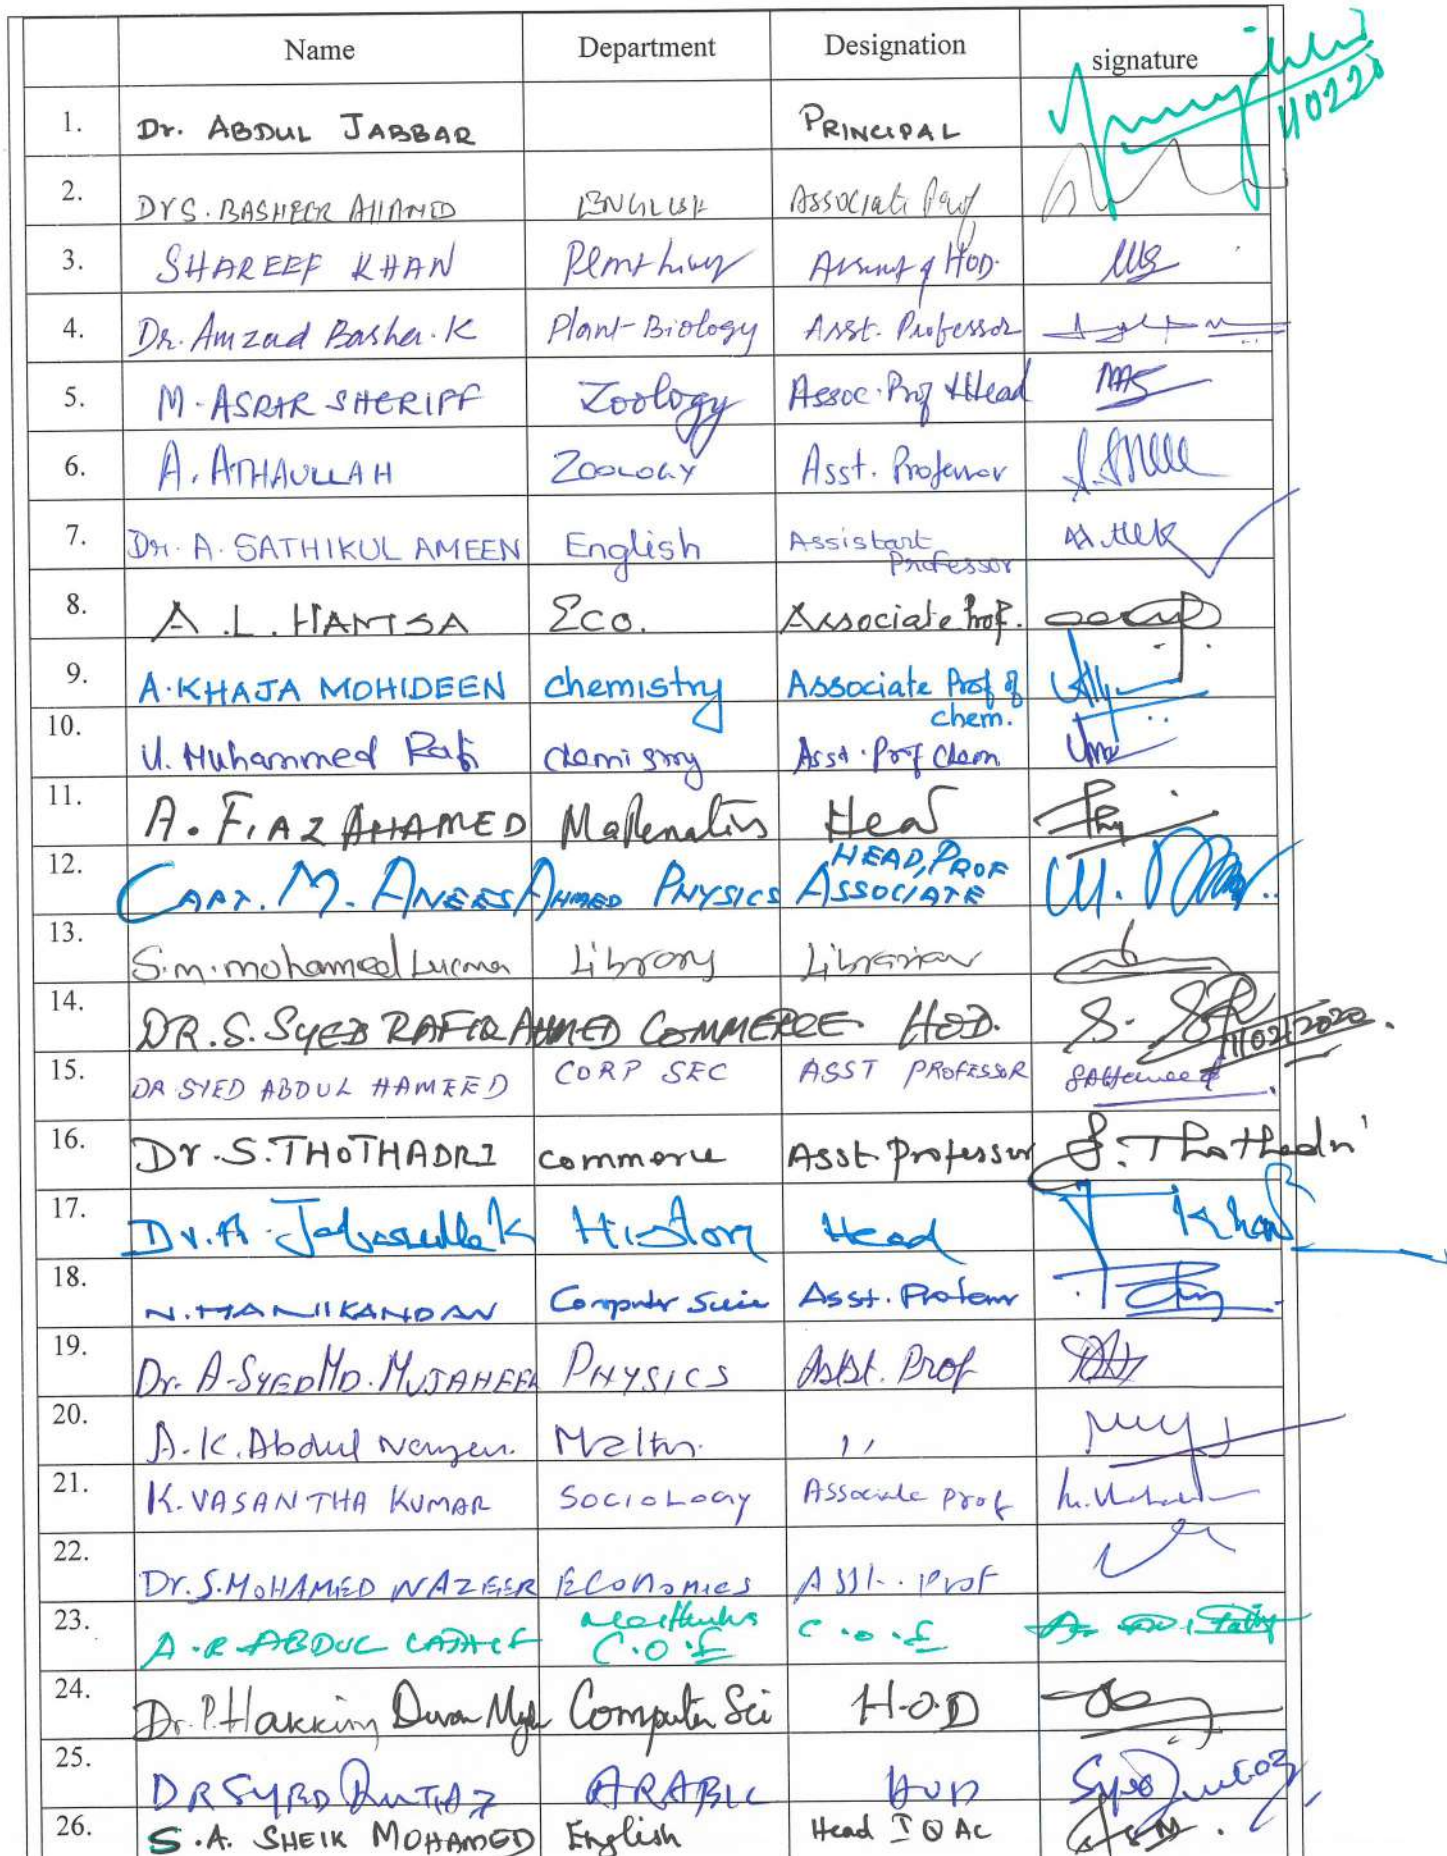 Name Department Designation signature
1. Dr. ABDUL JABBAR PRINCIPAL
110220
2. Dr S. BASHEER AHAMED ENGLISH Associate Prof
3. SHAREEF KHAN HOD.
4. Dr. Amzad Basha. K Plant-Biology Asst. Professor
5. M. ASRAR SHERIFF Zoology Assoc. Prof & Head
6. A. ATHAULLAH ZOOLOGY Asst. Professor
7. Dr. A. SATHIKUL AMEEN English Assistant
Professor
8. A.L. HAMSA Eco. Associate Prof.
9. A. KHAJA MOHIDEEN chemistry Associate Prof of
chem.
10. U. Muhammed Rafi chemistry Asst. Prof Chem
11. A. FIAZ AHAMED Mathematics Head
12. HEAD, PROF
CAPT. M. ANEES AHMED PHYSICS ASSOCIATE
13. S.m. mohamed Library Librarian
14. DR. S. SYED RAFIQ AHMED COMMERCE HOD.
11022020.
15. DR SYED ABDUL HAMEED CORP SEC ASST PROFESSOR SAHameed
16. Dr. S. THOTHADRI commerce Asst. professor S. Thothadri
17. Dr. A. History Head Khan
18. N. MANIKANDAN Computer Asst. Professor
19. Dr. A. SYED MD. MUJAHEER PHYSICS Asst. Prof
20. A.K. Abdul Maths. ,,
21. K. VASANTHA KUMAR SOCIOLOGY Associate prof
22. Dr. S. MOHAMED NAZEER Economics Asst. Prof
23. A.R. ABDUL LATHEEF C.O.E C.O.E
24. Dr. P. Hakkim Computer Sci H.O.D
25. DR SYED ARABIC HOD
26. S.A. SHEIK MOHAMED English Head IQAC